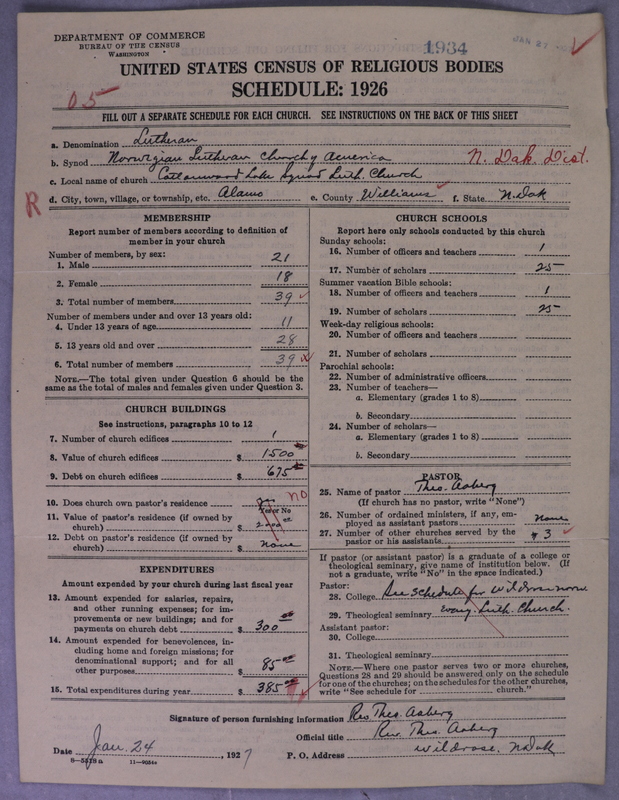 DEPARTMENT OF COMMERCE
BUREAU OF THE CENSUS
WASHINGTON
1934
JAN 27
UNITED STATES CENSUS OF RELIGIOUS BODIES
SCHEDULE: 1926
05
FILL OUT A SEPARATE SCHEDULE FOR EACH CHURCH. SEE INSTRUCTIONS ON THE BACK OF THIS SHEET
a. Denomination Lutheran
b. Synod Norwegian Lutheran Church of America N. Dak. Dist.
c. Local name of church Cottonwood Lake Synod Luth. Church
R
d. City, town, village, or township, etc. Alamo e. County Williams f. State N. Dak
MEMBERSHIP
Report number of members according to definition of
member in your church
Number of members, by sex:
1. Male 21
2. Female 18
3. Total number of members 39
Number of members under and over 13 years old:
4. Under 13 years of age 11
5. 13 years old and over 28
6. Total number of members 39
NOTE.—The total given under Question 6 should be the
same as the total of males and females given under Question 3.
CHURCH BUILDINGS
See instructions, paragraphs 10 to 12
7. Number of church edifices 1
8. Value of church edifices $ 1500
9. Debt on church edifices $ 675
10. Does church own pastor's residence? no
Yes or No
11. Value of pastor's residence (if owned by
church) $ 2000
12. Debt on pastor's residence (if owned by
church) $ none
EXPENDITURES
Amount expended by your church during last fiscal year
13. Amount expended for salaries, repairs,
and other running expenses; for im-
provements or new buildings; and for
payments on church debt $ 300
14. Amount expended for benevolences, in-
cluding home and foreign missions; for
denominational support; and for all
other purposes $ 85
15. Total expenditures during year $ 385
CHURCH SCHOOLS
Report here only schools conducted by this church
Sunday schools:
16. Number of officers and teachers 1
17. Number of scholars 25
Summer vacation Bible schools:
18. Number of officers and teachers 1
19. Number of scholars 25
Week-day religious schools:
20. Number of officers and teachers
21. Number of scholars
Parochial schools:
22. Number of administrative officers
23. Number of teachers—
a. Elementary (grades 1 to 8)
b. Secondary
24. Number of scholars—
a. Elementary (grades 1 to 8)
b. Secondary
PASTOR
25. Name of pastor Theo. Aaberg
(If church has no pastor, write "None")
26. Number of ordained ministers, if any, em-
ployed as assistant pastors none
27. Number of other churches served by the
pastor or his assistants 3
If pastor (or assistant pastor) is a graduate of a college or
theological seminary, give name of institution below. (If
not a graduate, write "No" in the space indicated.)
Pastor:
28. College See Schedule for Wildrose norw.
29. Theological seminary evang. Luth. Church.
Assistant pastor:
30. College
31. Theological seminary
NOTE.—Where one pastor serves two or more churches,
Questions 28 and 29 should be answered only on the schedule
for one of the churches; on the schedules for the other churches,
write "See schedule for church."
Signature of person furnishing information Rev Theo. Aaberg
Official title Rev. Theo. Aaberg
Date Jan. 24, 1927 P. O. Address Wildrose, N Dak
8—5518 a 11—9054